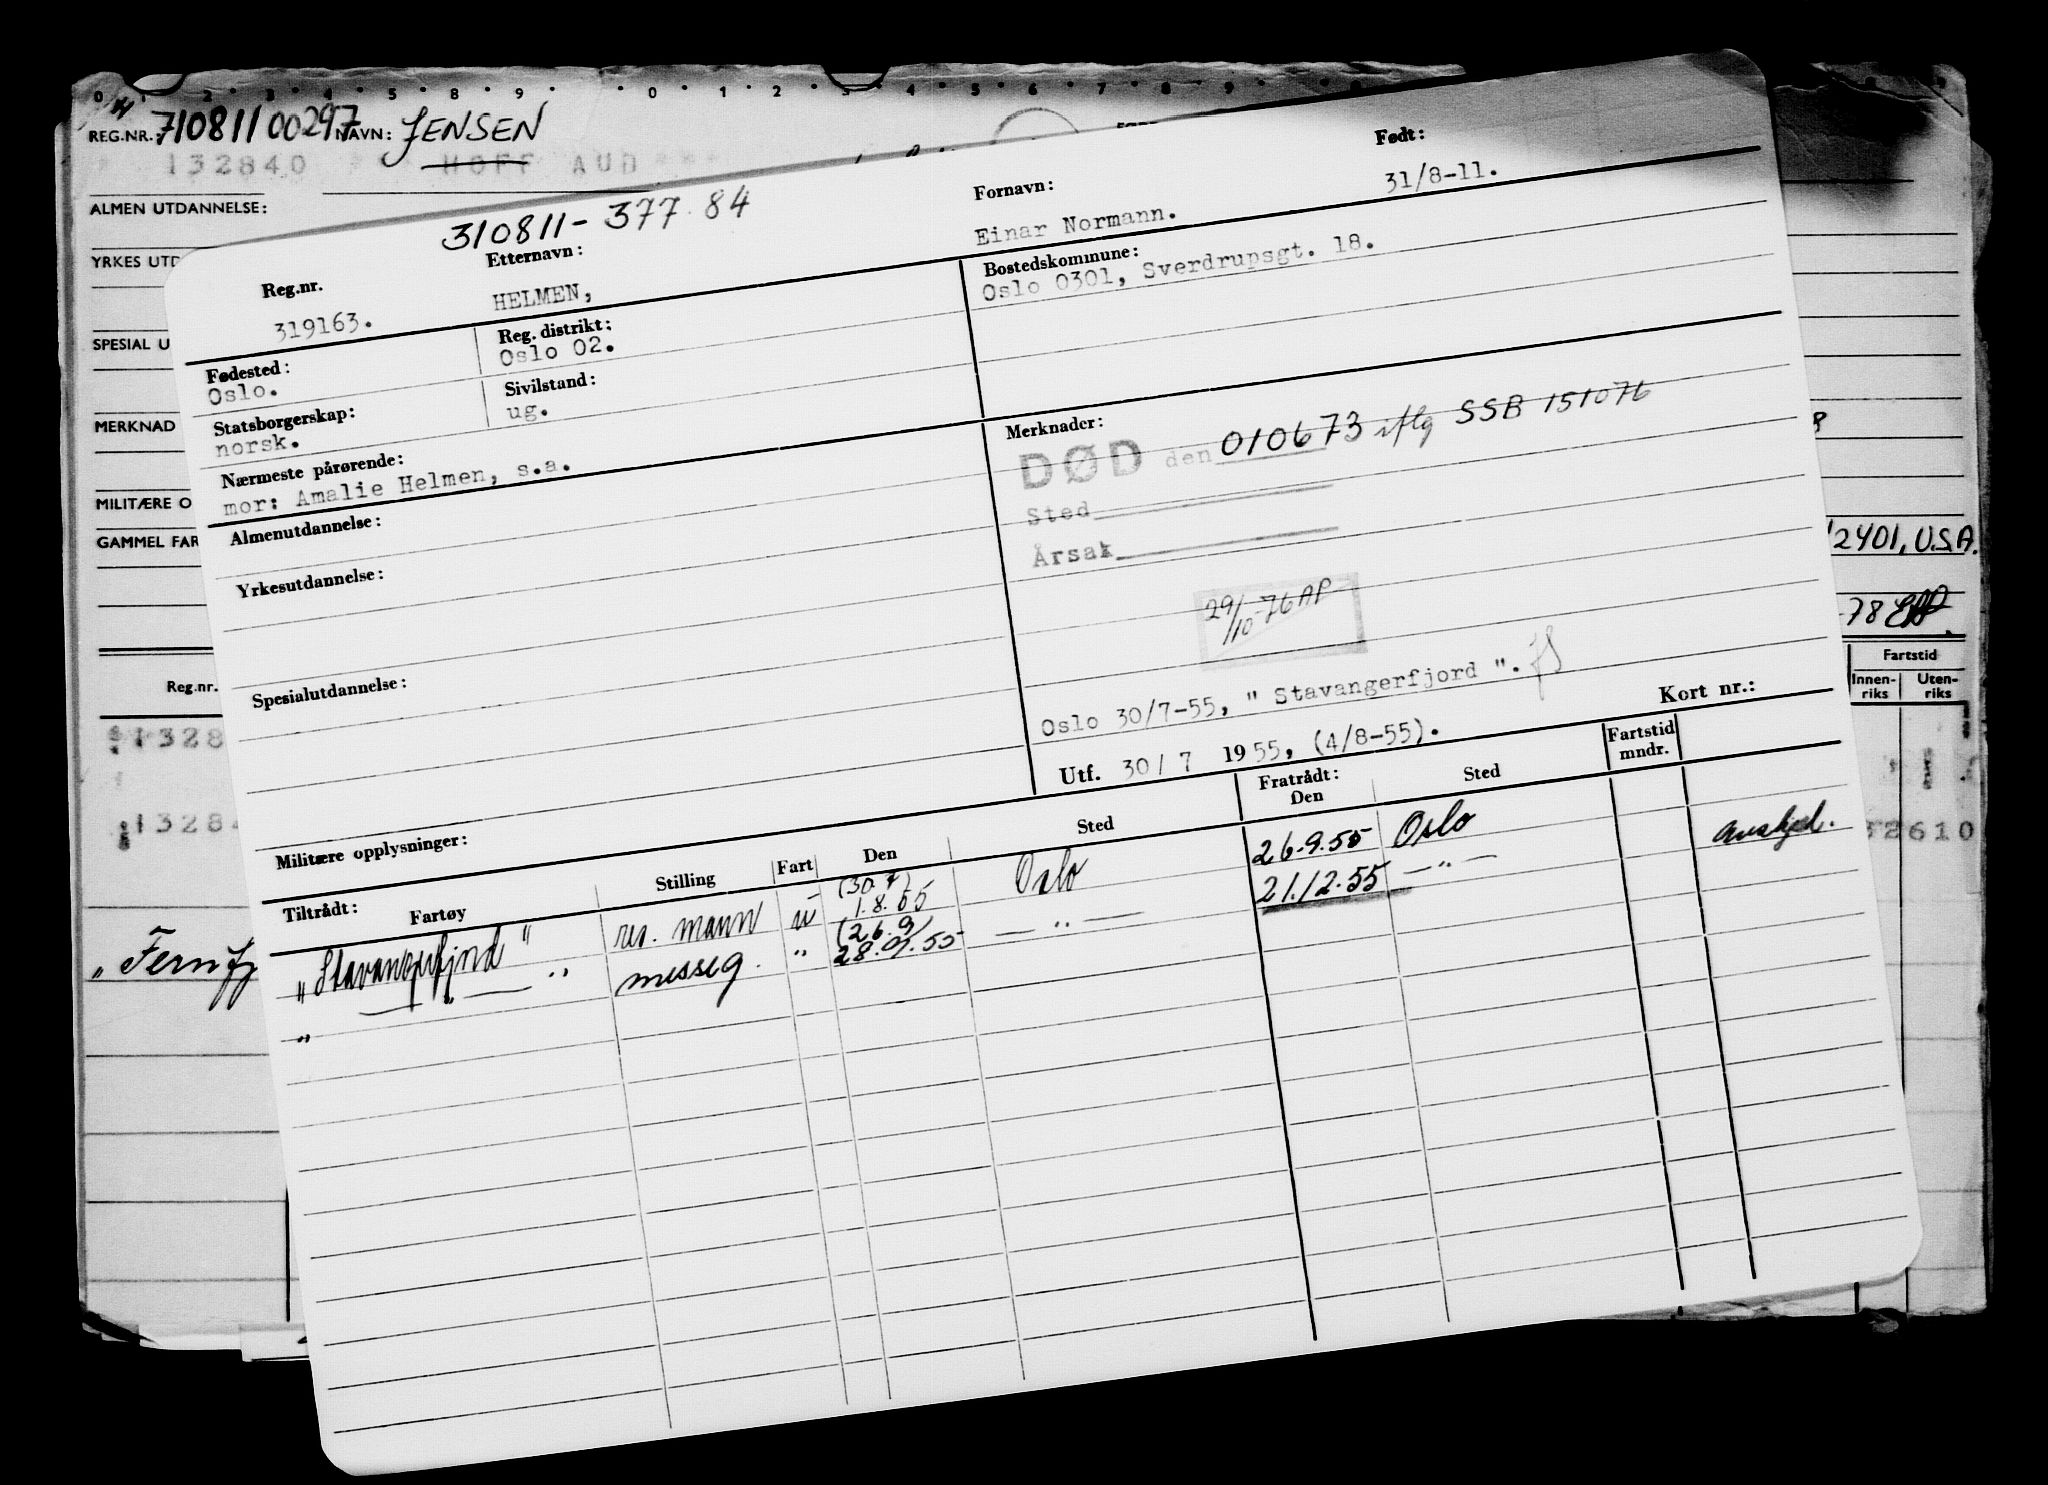 0 1 2 3 4 5 8 9 0 1 2 3 4 5 6 7 8 9
REG.NR.: 71081100297 NAVN: JENSEN
132840 HOFF AUD
ALMEN UTDANNELSE:
YRKES UTD
SPESIAL U
MERKNAD
MILITÆRE O
GAMMEL FAR
2401, U.S.A.
-78
Reg.nr.
Fartstid
Innen-riks Uten-riks
1328
1328
2610
310811-377 84
Reg.nr. Etternavn: Fornavn: Født:
319163. HELMEN, Einar Normann. 31/8-11.
Fødested: Reg. distrikt: Bostedskommune:
Oslo. Oslo 02. Oslo 0301, Sverdrupsgt. 18.
Statsborgerskap: Sivilstand:
norsk. ug.
Nærmeste pårørende: Merknader:
mor: Amalie Helmen, s.a.
DØD den 010673 iflg SSB 151076
Sted
Årsak
29/10-76 AP
Almenutdannelse:
Yrkesutdannelse:
Spesialutdannelse:
Oslo 30/7-55, " Stavangerfjord ".
Utf. 30/7 1955, (4/8-55). Kort nr.:
Militære opplysninger:
Tiltrådt: Fartøy Stilling Fart Den Sted Fratrådt: Den Sted Fartstid mndr.
"Stavangerfjord" res. mann u (30.7) 1.8.55 Oslo 26.9.55 Oslo
" — " — " messeg. " (26.9) 28.9.55 — " — 21.12.55 — " — Avskjed.